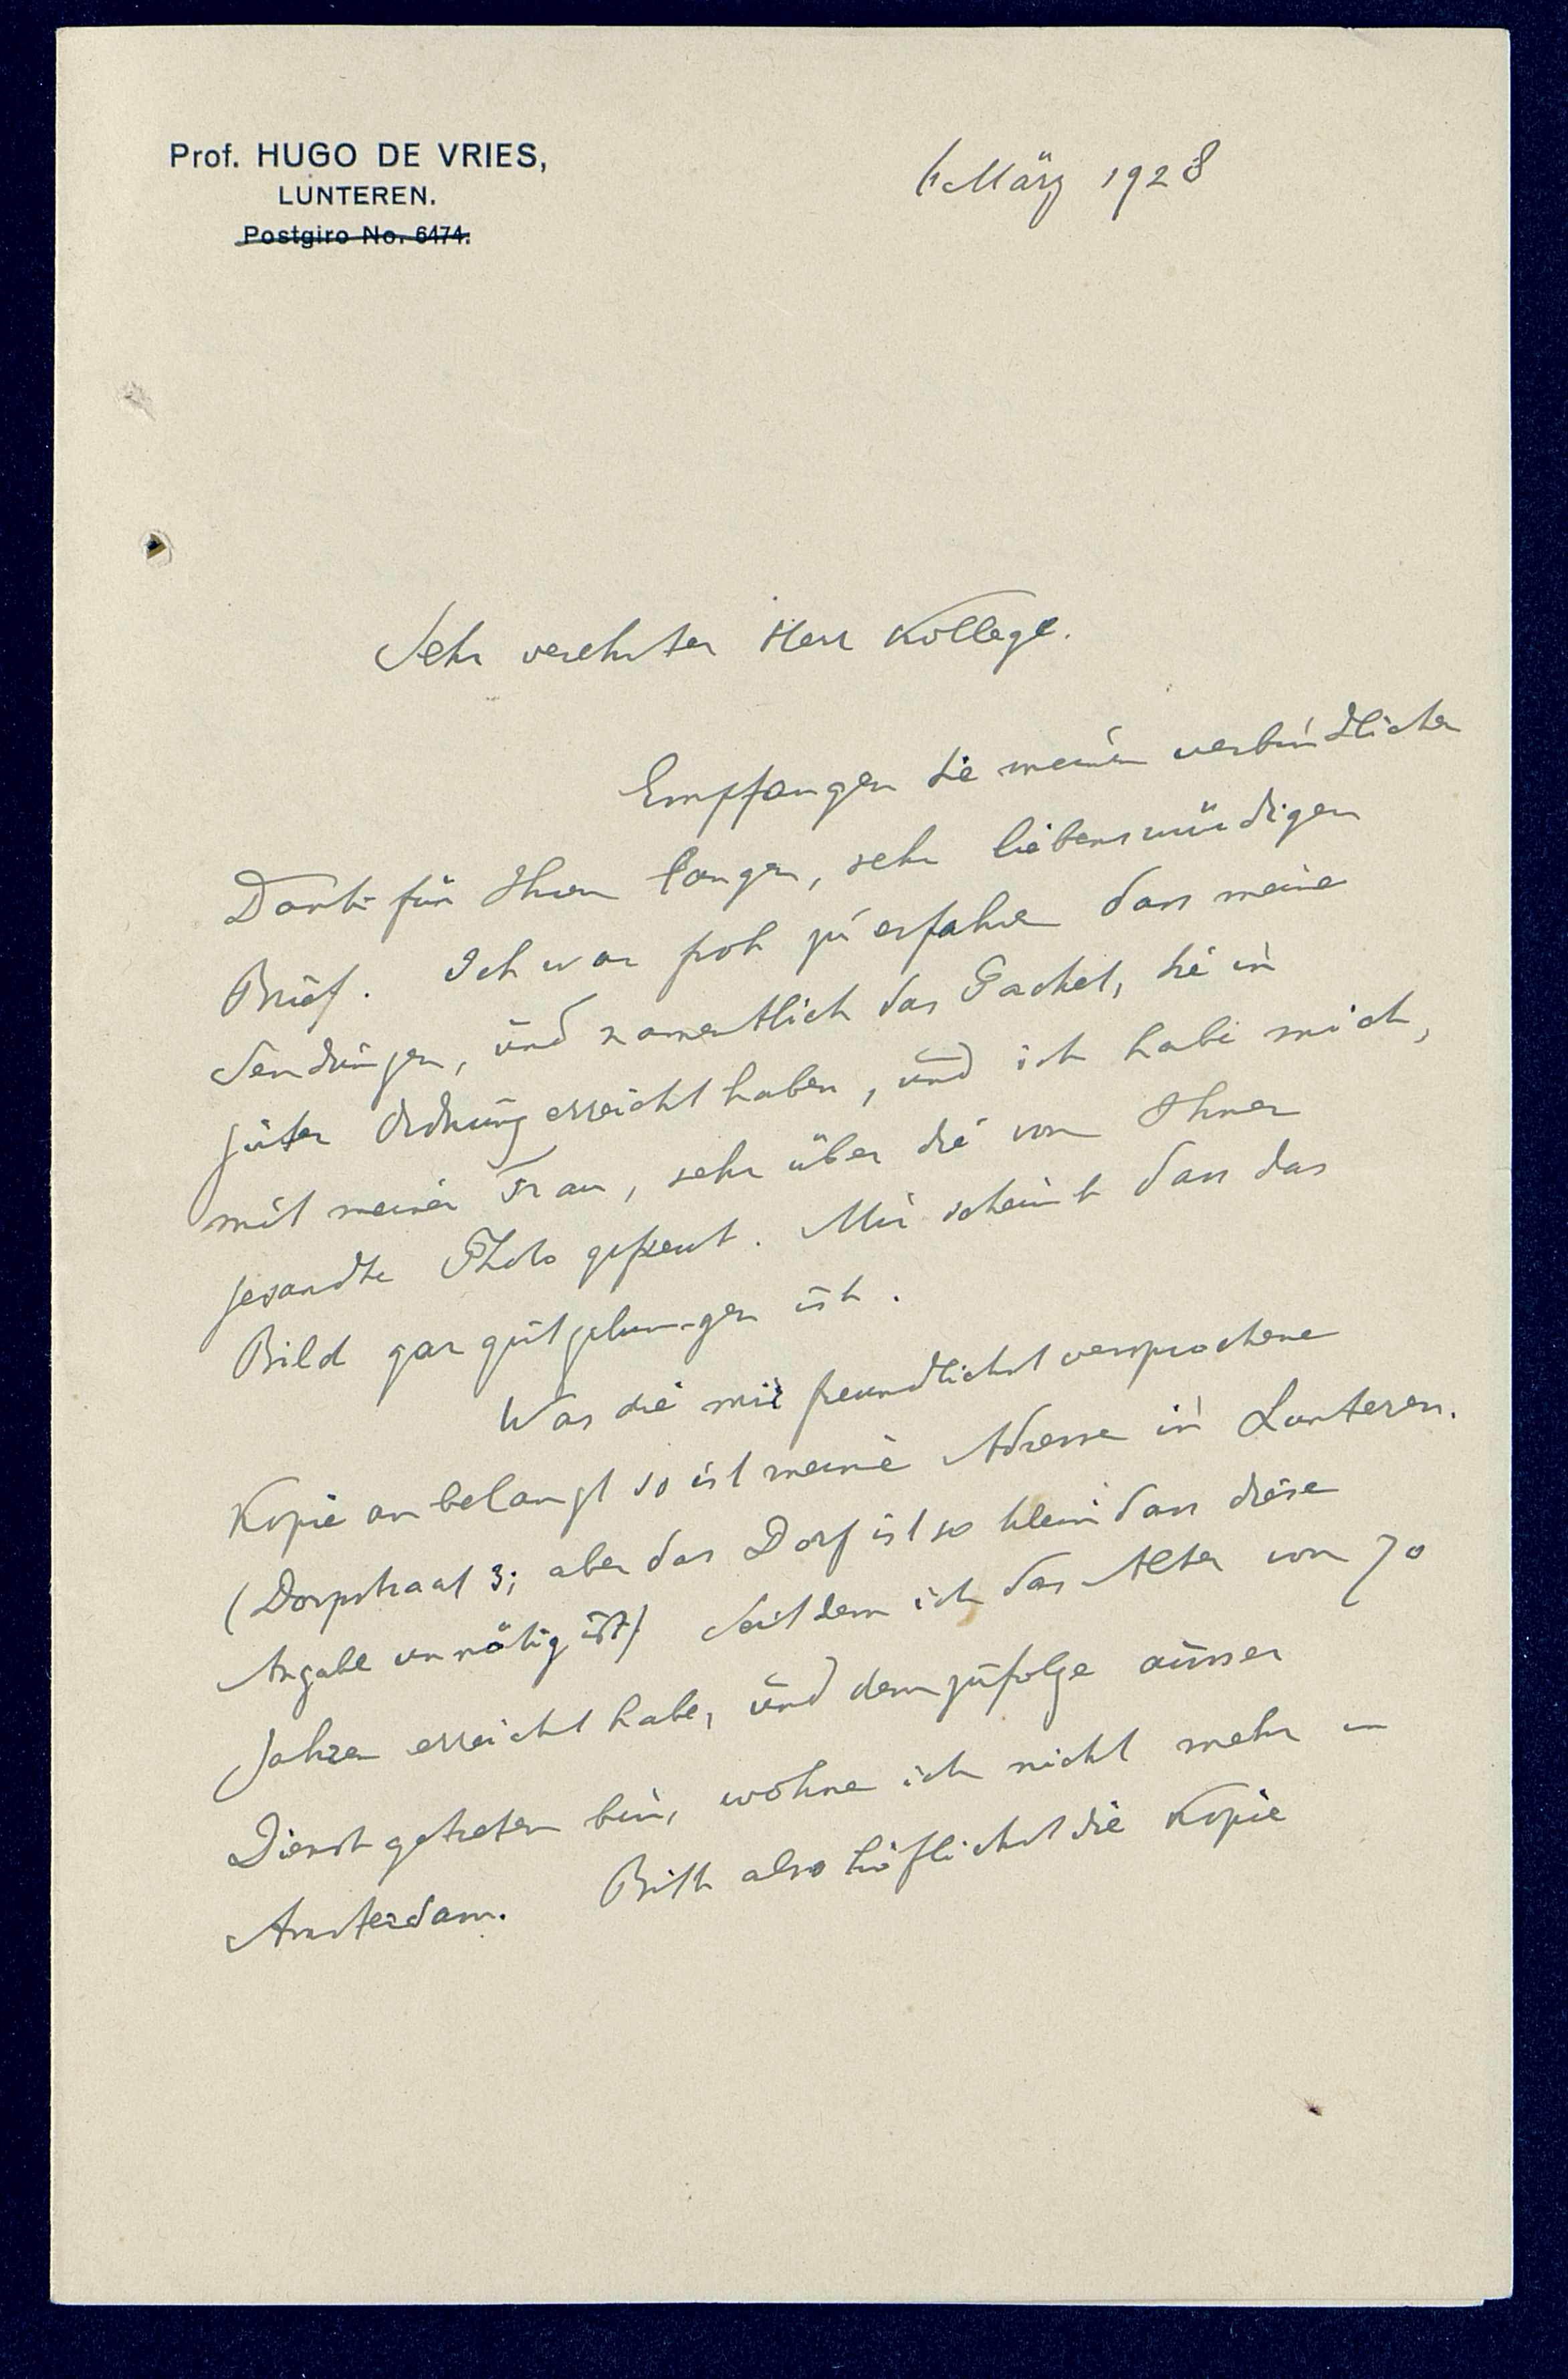 Prof. HUGO DE VRIES,
LUNTEREN.
Postgiro No. 6474.
6 März 1928
Sehr verehrter Herr Kollege.
Empfangen Sie meinen verbindlichen
Dank für Ihren langen, sehr liebenswürdigen
Brief. Ich war froh zu erfahren dass meine
Sendungen, und namentlich das Packet, Sie in
guter Ordnung erreicht haben, und ich habe mich,
mit meiner Frau, sehr über die von Ihnen
gesandte Photo gefreut. Mir scheint dass das
Bild gar gut gelungen ist.
Was die mir freundlichst versprochene
Kopie anbelangt so ist meine Adresse in Lunteren.
(Dorpstraat 3; aber das Dorf ist so klein dass diese
Angabe unnötig ist) Seitdem ich das Alter von 70
Jahren erreicht habe, und demzufolge ausser
Dienst getreten bin, wohne ich nicht mehr in
Amsterdam. Bitte also höflichst die Kopie